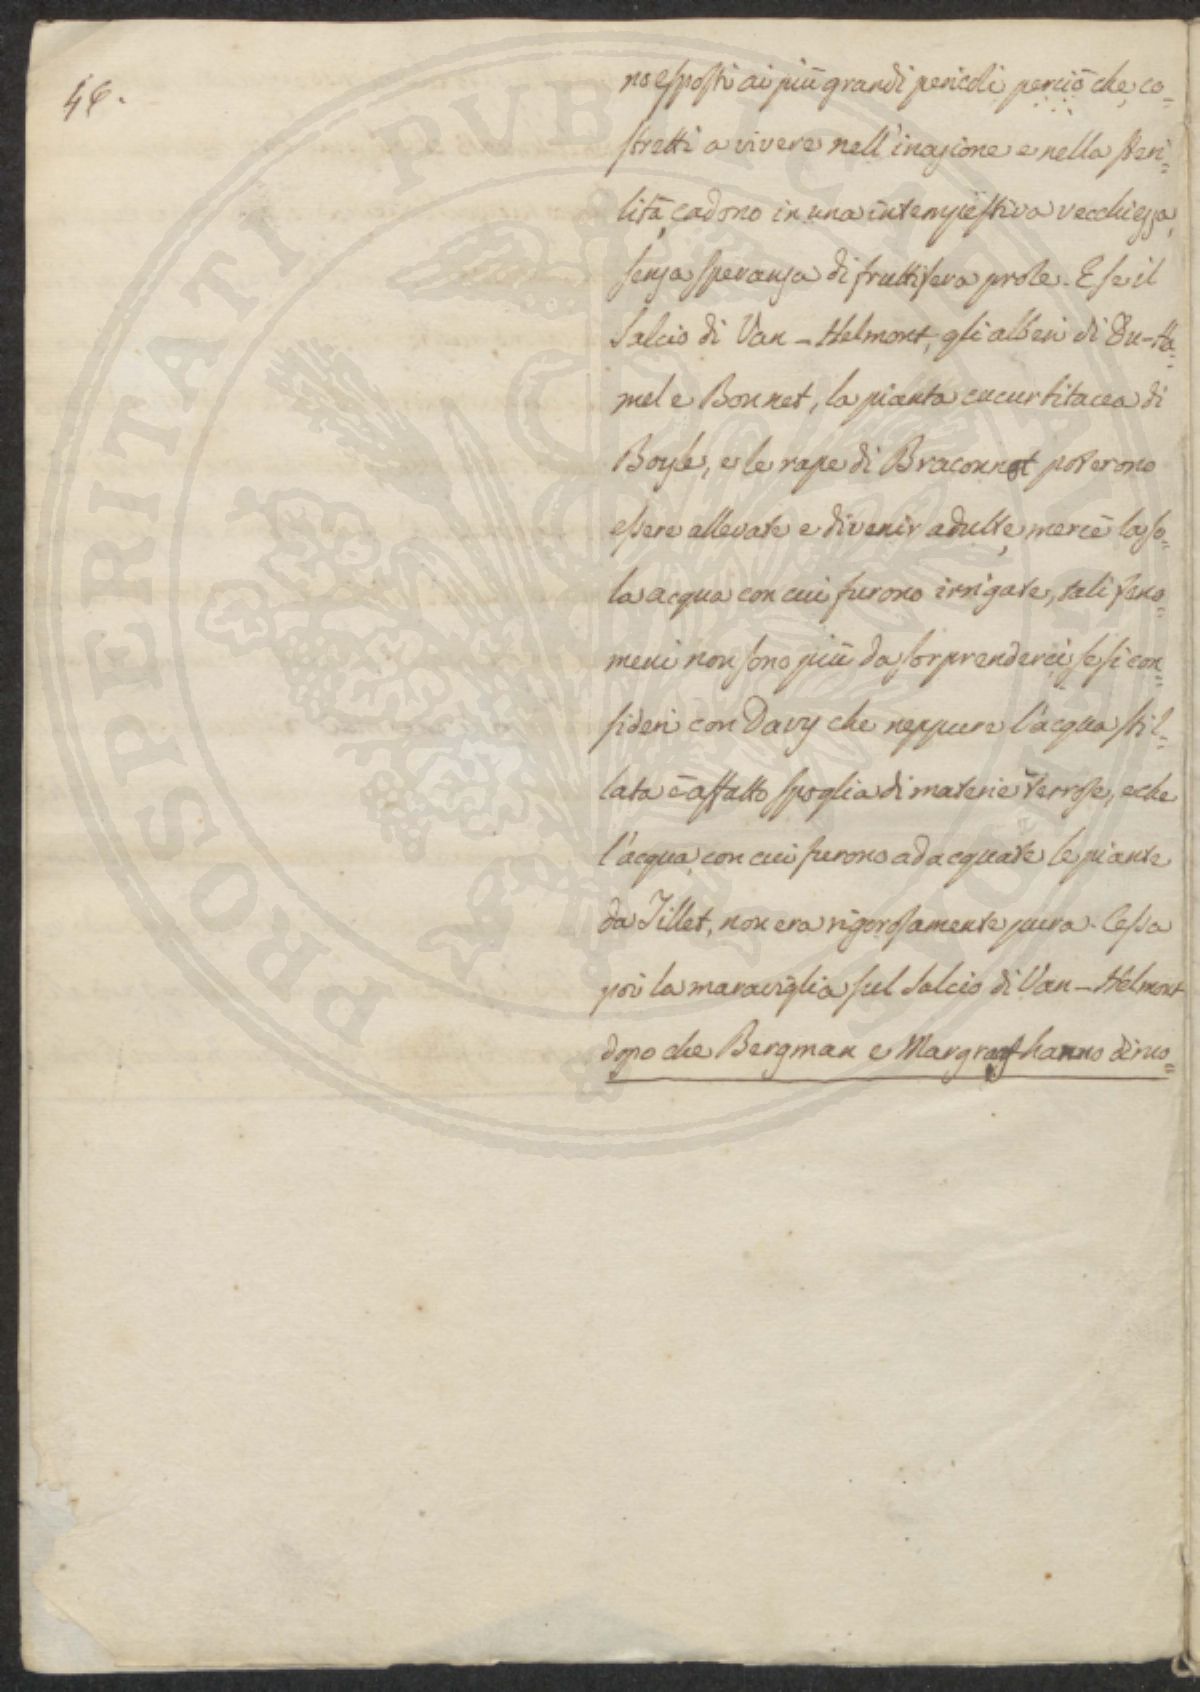 46.
no esposti ai più grandi pericoli perciò che, co-
stretti a vivere nell'inazione e nella steri=
lità, cadono in una intempestiva vecchiezza,
senza speranza di fruttifera prole. E se il
Salcio di Van-Helmont, gli alberi di Du-Ha=
mel e Bonnet, la pianta cucurbitacea di
Boyle, e le rape di Braconnot poterono
essere allevate e divenir adulte, mercè la so=
la acqua con cui furono irrigate, tali feno=
meni non sono più da sorprenderci, se si con=
sideri con Davy che neppure l'acqua stil=
lata è affatto spoglia di materie terrose, e che
l'acqua, con cui furono adacquate le piante
da Tillet, non era rigorosamente pura. Cessa
poi la maraviglia sul Salcio di Van-Helmont
dopo che Bergman e Margraaf hanno dimo=
PROSPERITATI PUBLICAE AUGENDAE